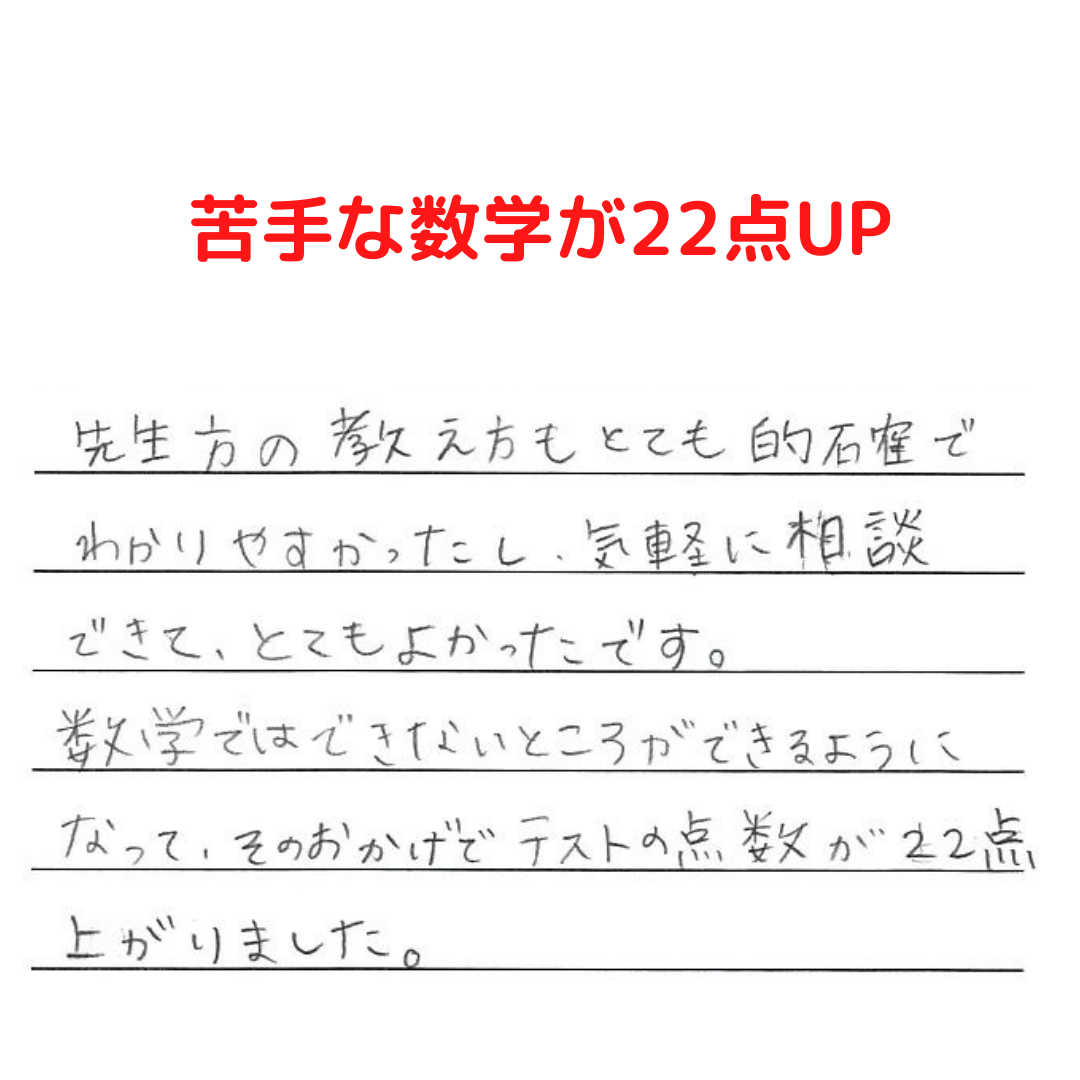 苦手な数学が22点UP
先生方の教え方もとても的確で
わかりやすかったし、気軽に相談
できて、とてもよかったです。
数学ではできないところができるように
なって、そのおかげでテストの点数が22点
上がりました。